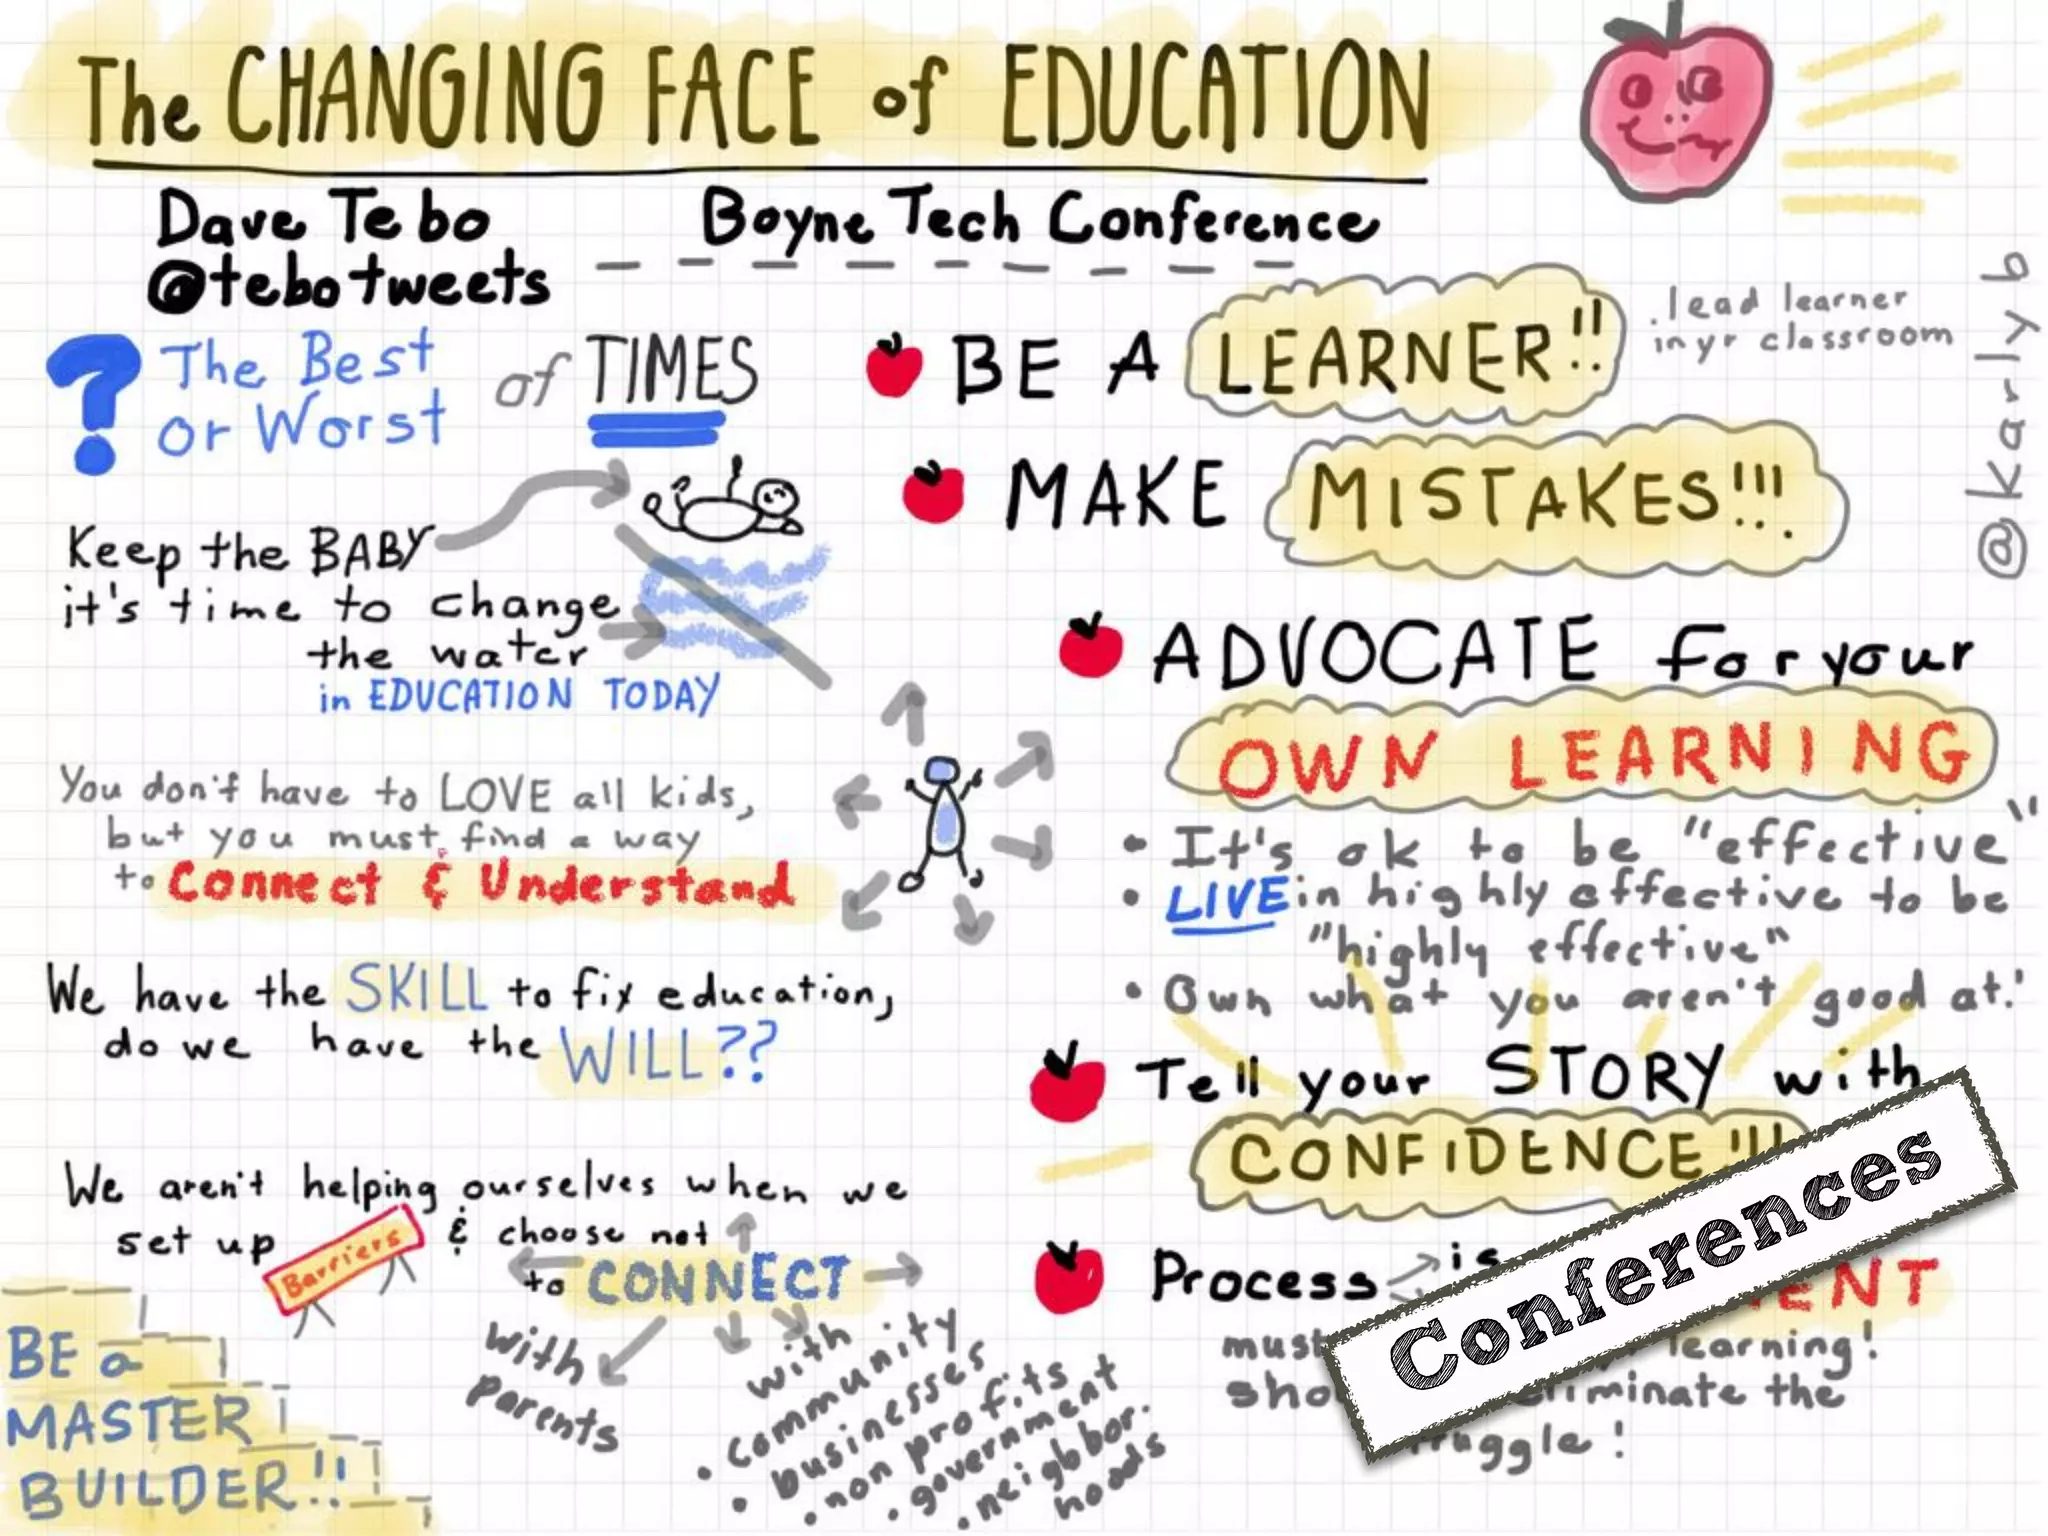 The CHANGING FACE of EDUCATION
Dave Tebo
@tebotweets
Boyne Tech Conference
? The Best
or Worst
of TIMES
Keep the BABY
it's time to change
the water
in EDUCATION TODAY
You don't have to LOVE all kids,
but you must find a way
to Connect & Understand
We have the SKILL to fix education,
do we have the WILL??
We aren't helping ourselves when we
set up Barriers & choose not
to CONNECT
with
parents
with
• community
• businesses
• non profits
• government
• neighbor-
hoods
BE a
MASTER
BUILDER!!
BE A LEARNER!!
. lead learner
in yr classroom
@karlyb
MAKE MISTAKES!!!
ADVOCATE for your
OWN LEARNING
• It's ok to be "effective"
• LIVE in highly effective to be
"highly effective"
• Own what you aren't good at!
Tell your STORY with
CONFIDENCE!!!
Process is
learning!
the
!
Conferences